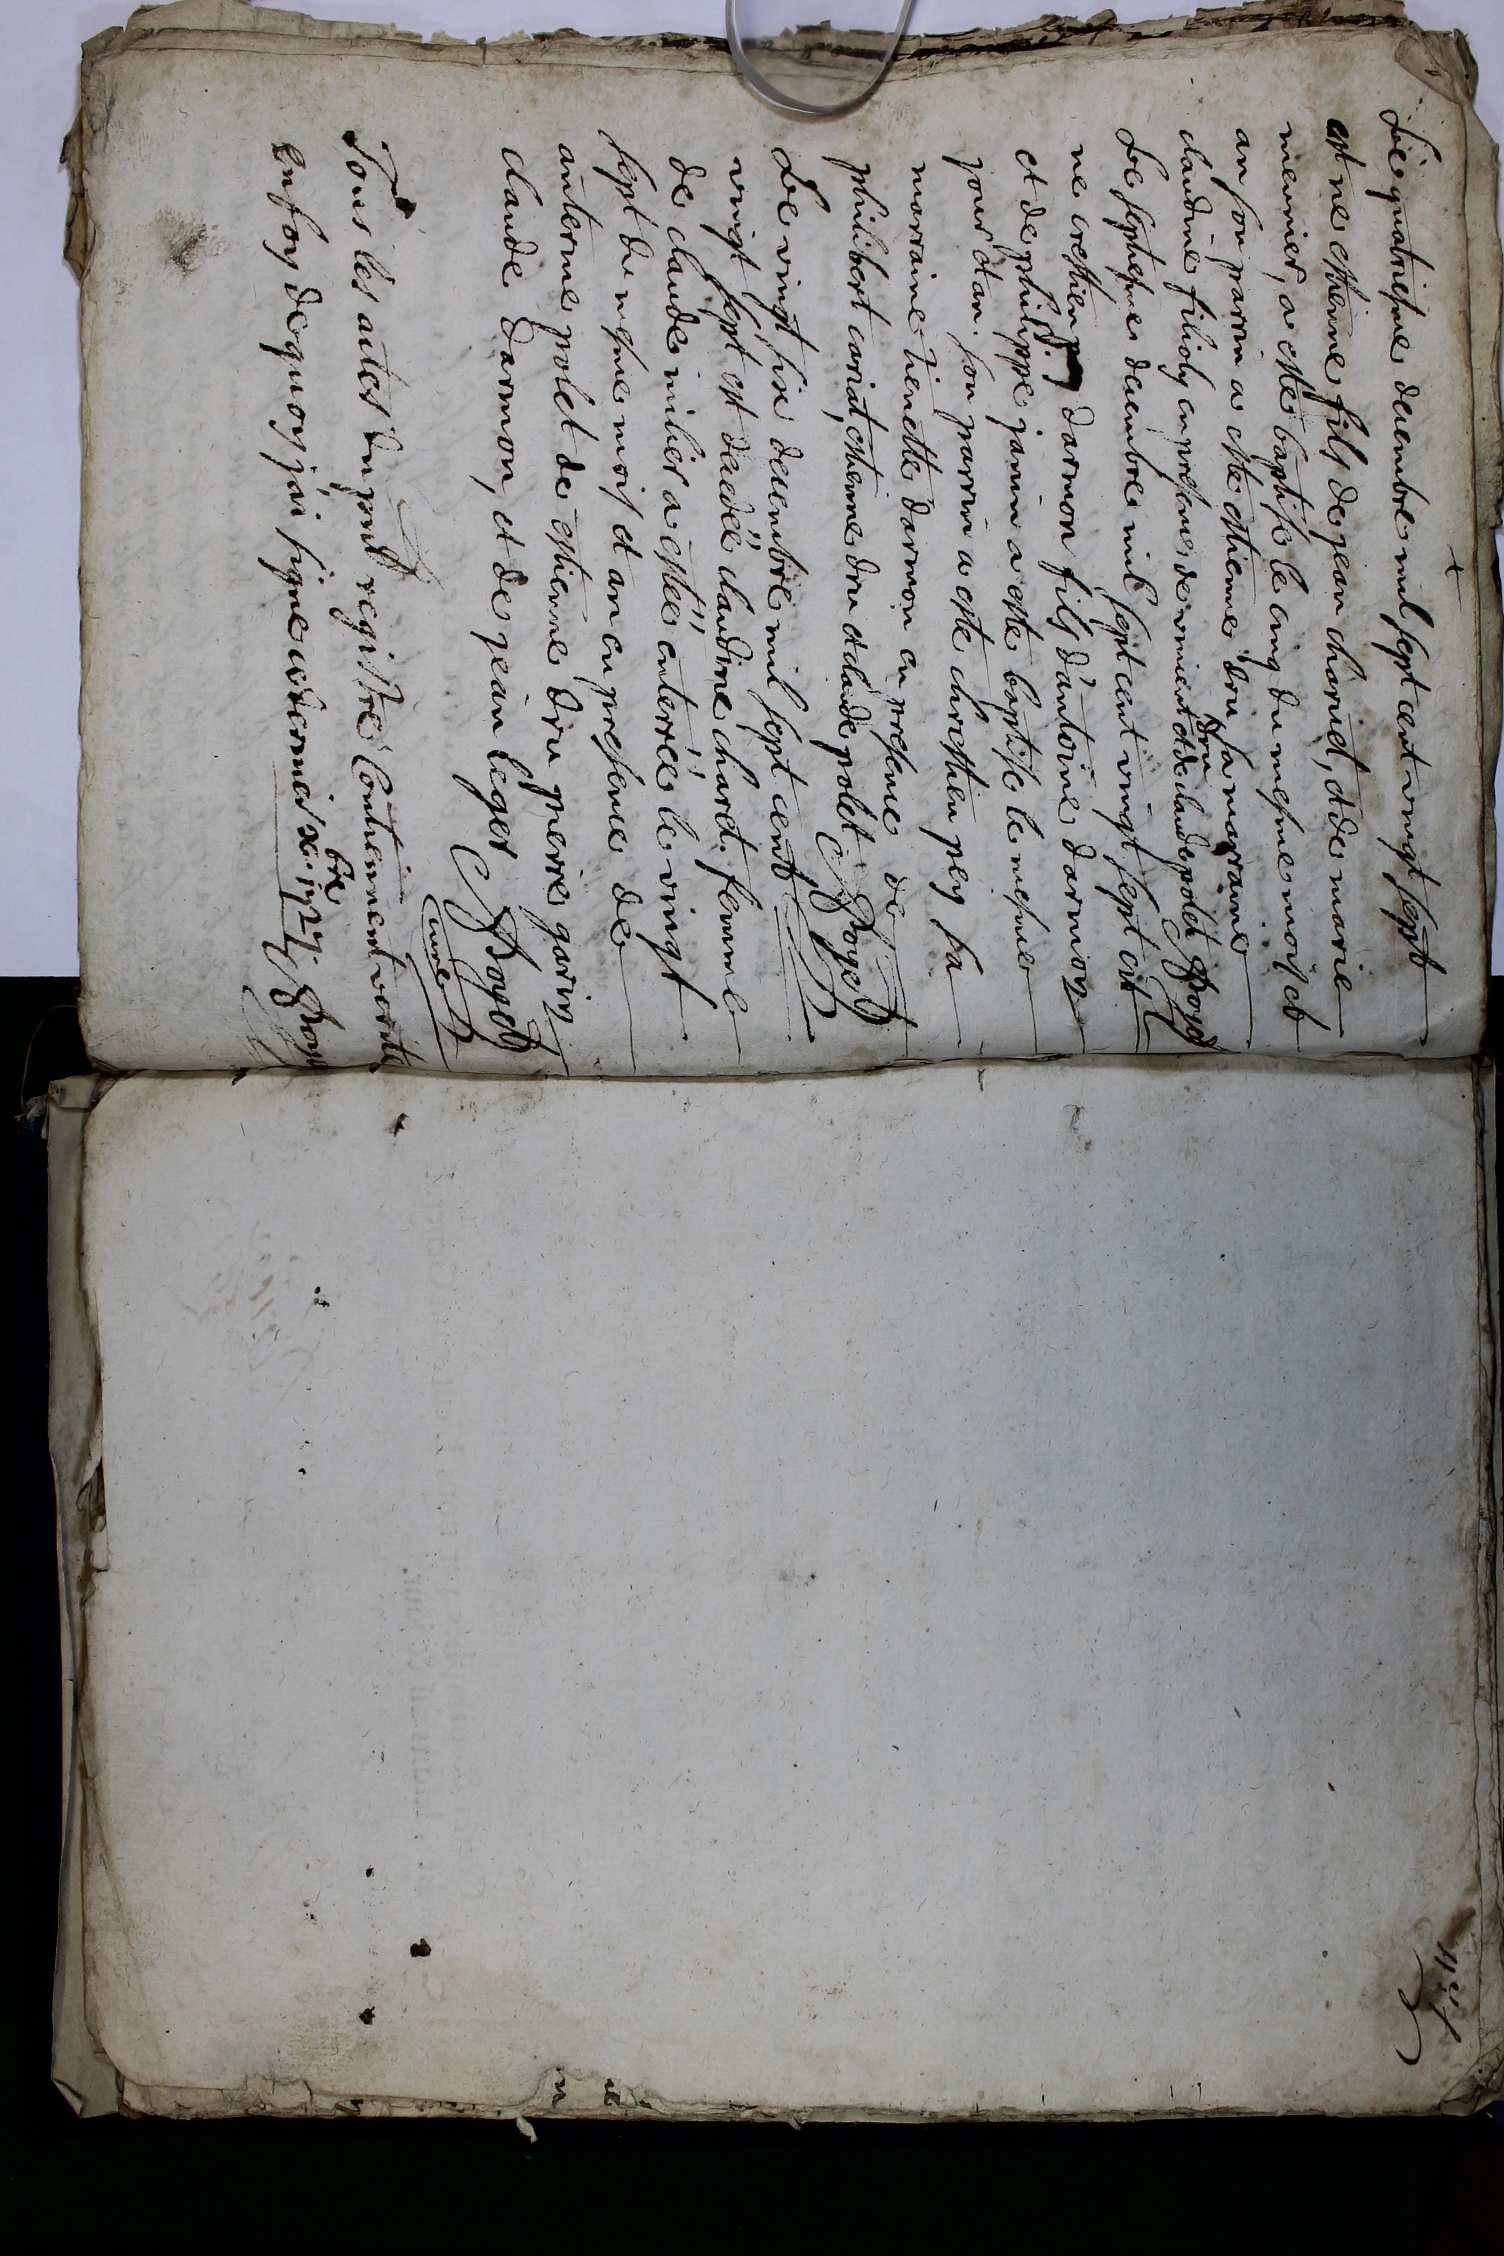 +
Le quatriesme decembre mil sept cent vingt sept
est ne estienne fils de jean charnet, et de marie
meunier, a este baptise le cinq du mesme mois et
an son parrin a este estienne dru sa marraine
claudine filioly en presence de vincent dru et de claude polet Boyet
Le septiesme decembre mil sept cent vingt sept est
ne crestien darmon fils d'antoine darmon
et de philippe janin a este baptise le mesme
jour et an. son parrin a este chrestien pey sa
marraine Lienette darmon en presence de
philibert cariat, estienne dru et claude polet Boyet
Le vingt sixe decembre mil sept cent
vingt sept est decedée claudine charet. femme
de claude milier a estée enterrée le vingt
sept du mesme mois et an en presence de
anterme polet de estienne dru pierre garin
claude darmon, et de jean leger Boyet
curé
Tous les actes du pnt registre Contiennent verité
en foy de quoy j'ai signe ce dernier xbre 1727 Boyet